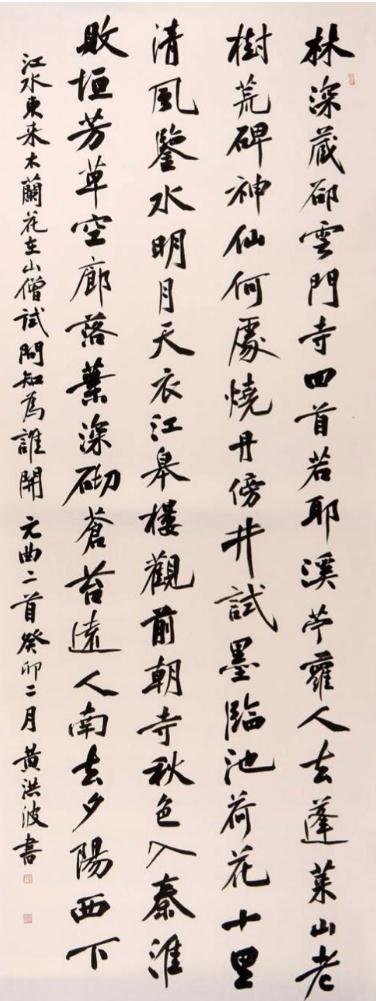 林深藏卻雲門寺回首若耶溪苧蘿人去蓬萊山老
樹荒碑神仙何處燒丹傍井試墨臨池荷花十里
清風鑒水明月天衣江皋樓觀前朝寺秋色入秦淮
敗垣芳草空廊落葉深砌蒼苔遠人南去夕陽西下
江水東來木蘭花在山僧試問知為誰開 元曲二首癸卯二月黃洪波書